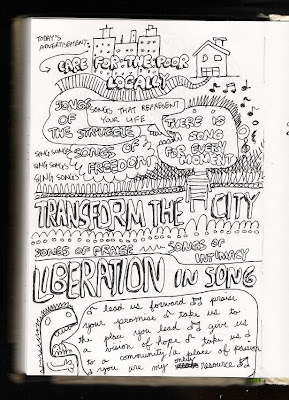 TODAY'S
ADVERTISEMENT:
CARE FOR THE POOR
LOCALLY
SONGS
OF
THE STRUGGLE
SONGS THAT REPRESENT
YOUR LIFE
THERE IS
A SONG
FOR EVERY
MOMENT
SING SONGS
SING SONGS
SING SONGS
SONGS OF
FREEDOM
TRANSFORM THE CITY
SONGS OF PRAISE
SONGS OF
INTIMACY
LIBERATION IN SONG
lead us forward praise
your promise take us to
the place you lead give us
a vision of hope take us
to a community/a place of passion
you are my only resource